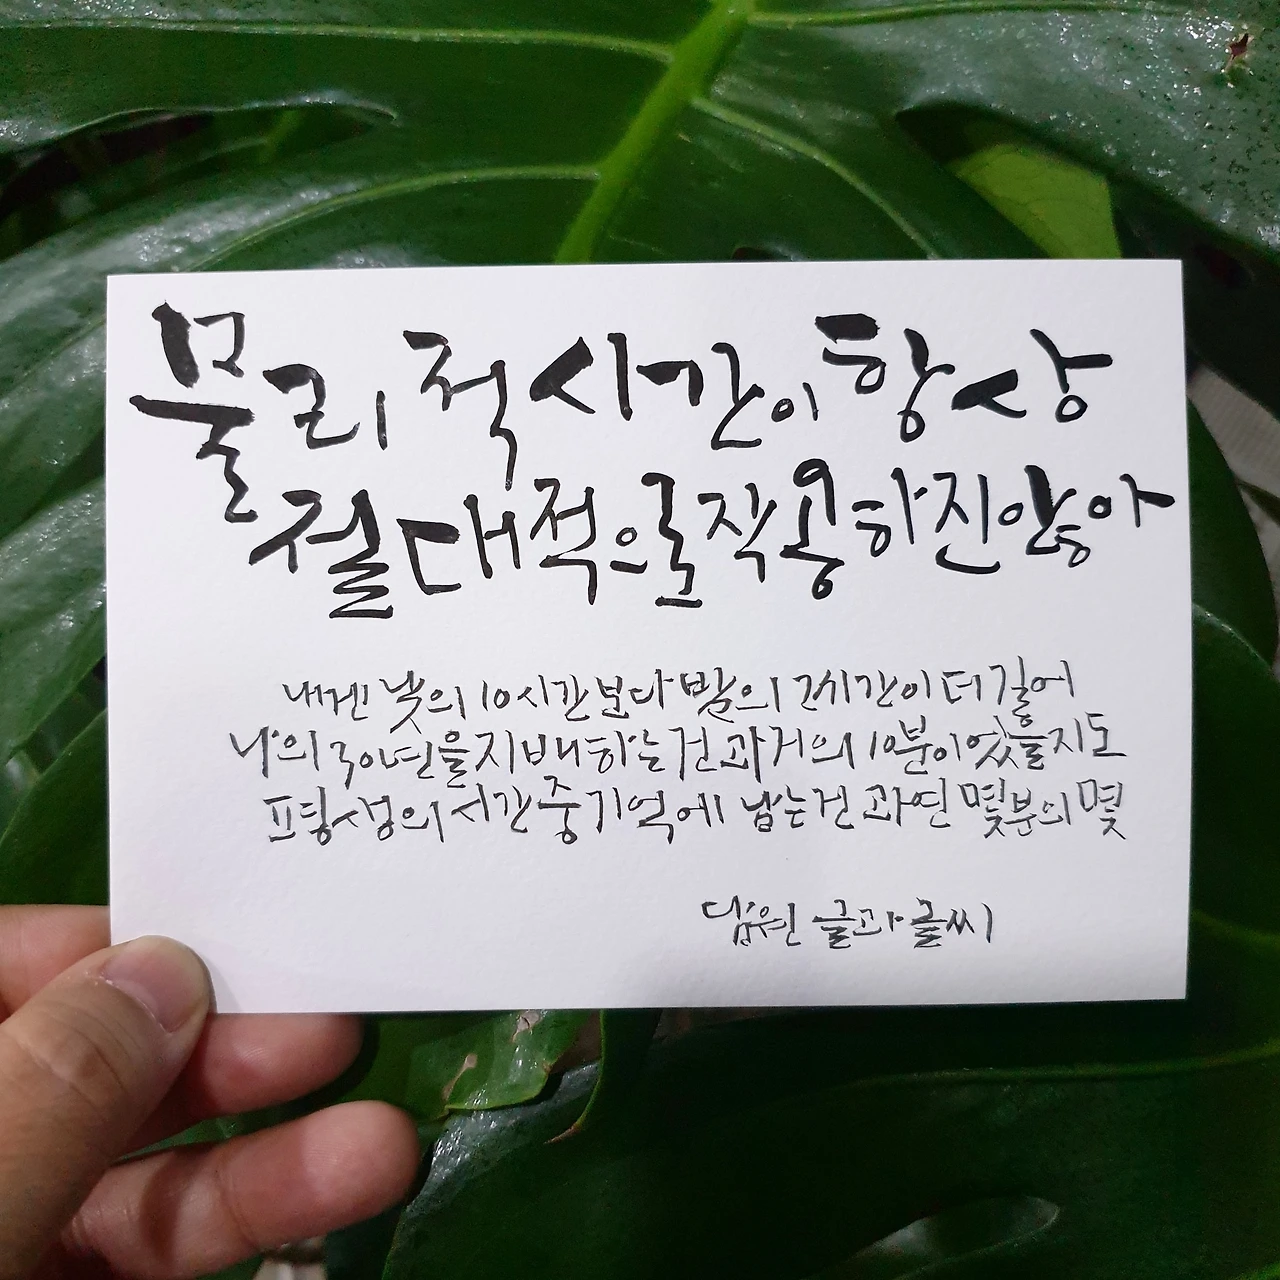 물리적 시간이 항상
절대적으로 작용하진 않아
내겐 낮의 10시간보다 밤의 2시간이 더 길어
나의 30년을 지배하는 건 과거의 10분이었을지도
평생의 시간 중 기억에 남는 건 과연 몇 분의 몇
담원 글과 글씨